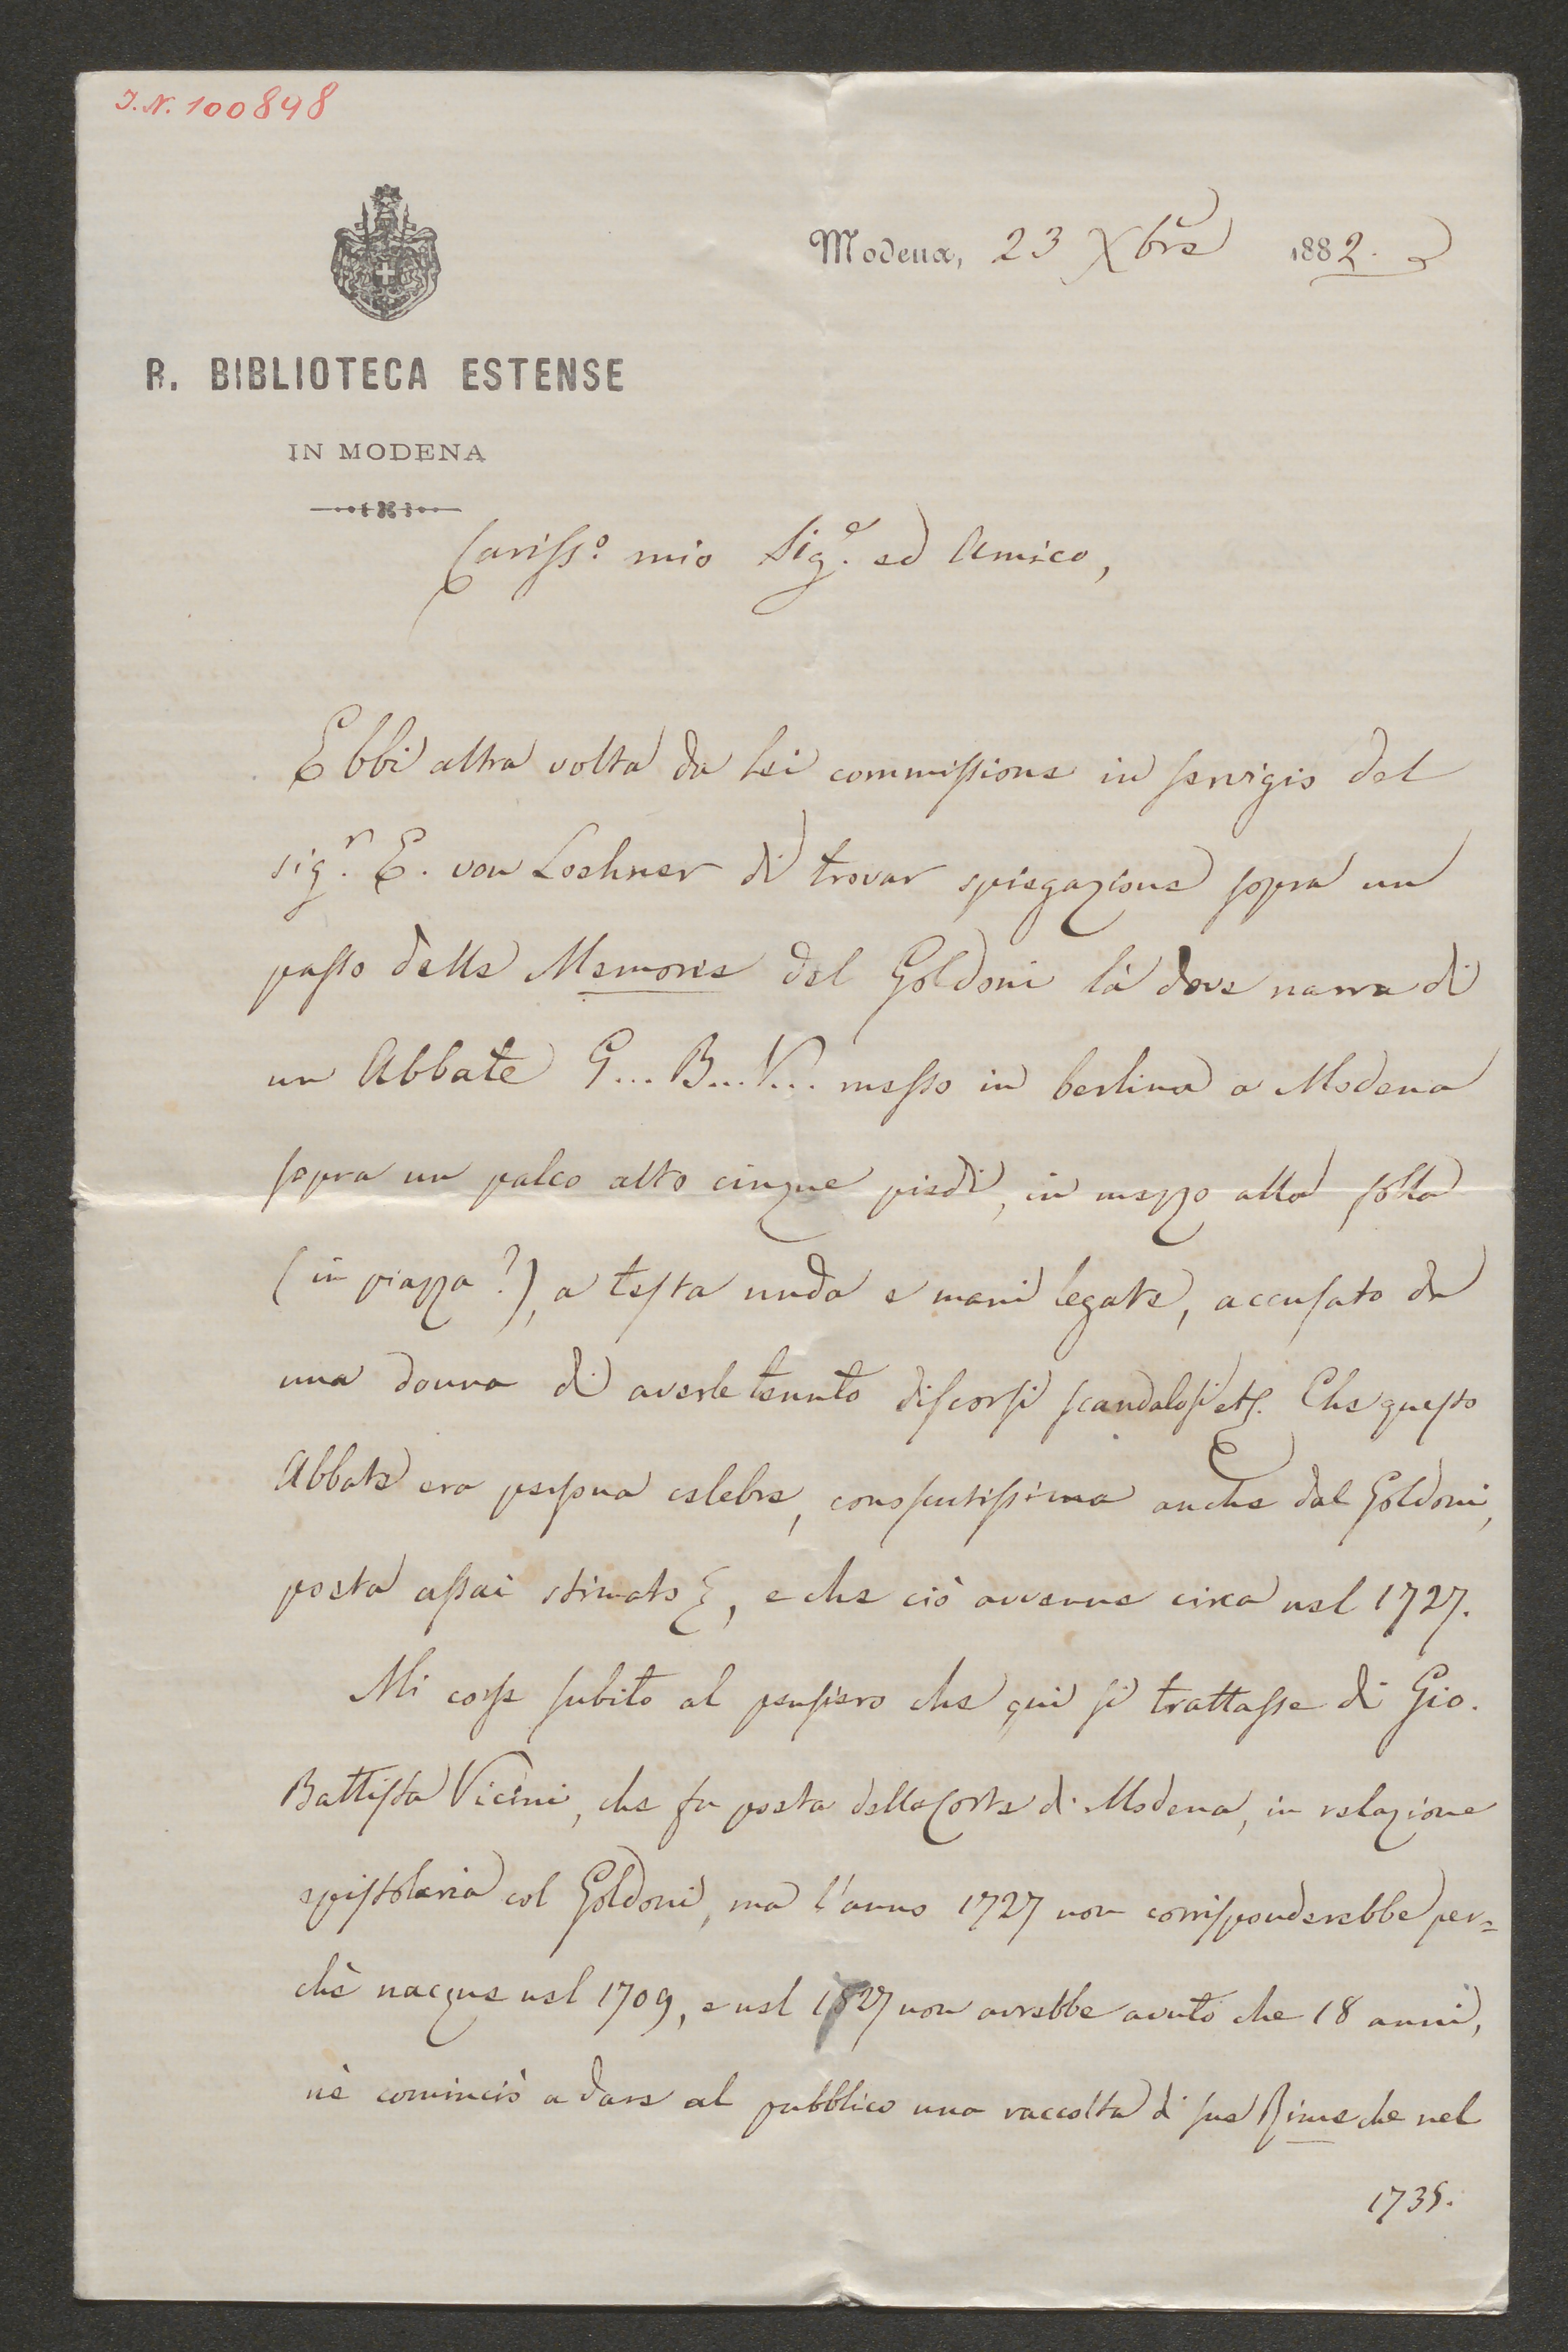 I.N. 100898
Modena, 23 Xbre 1882.
R. BIBLIOTECA ESTENSE
IN MODENA
Carisso. mio Sige. ed Amico,
Ebbi altra volta da Lei commissione in servigio del
sigr. E. von Loehner di trovar spiegazione sopra un
passo delle Memorie del Goldoni là dove narra di
un Abbate G... B... V... messo in berlina a Modena
sopra un palco alto cinque piedi, in mezzo alla folla
(in piazza?), a testa nuda e mani legate, accusato da
una donna di averle tenuto discorsi scandalosi etc. Che questo
Abbate era persona celebre, conosciutissima anche dal Goldoni,
poeta assai stimato, e che ciò avvenne circa nel 1727.
Mi corse subito al pensiero che qui si trattasse di Gio.
Battista Vicini, che fu poeta della Corte di Modena, in relazione
epistolaria col Goldoni, ma l'anno 1727 non corrisponderebbe per=
chè nacque nel 1709, e nel 1727 non avrebbe avuto che 18 anni,
nè cominciò a dare al pubblico una raccolta di sue Rime che nel
1735.